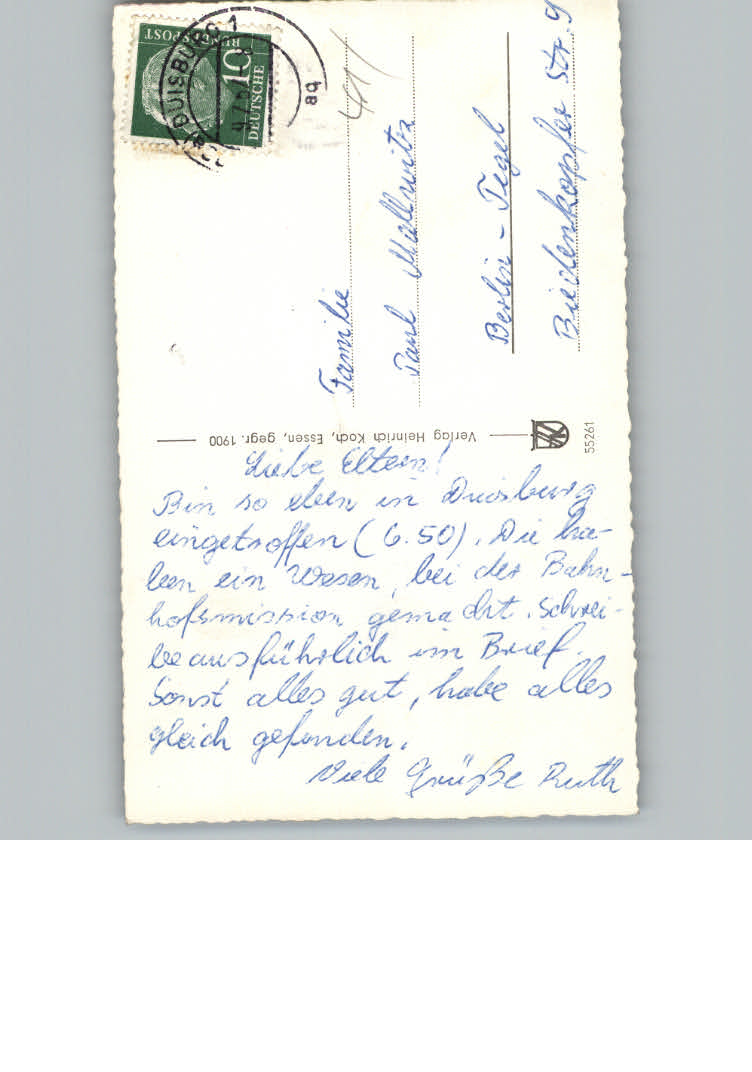 DEUTSCHE
BUNDESPOST
10
DUISBURG 1
aq
Familie
Paul
Berlin - Tegel
Biedenkopfer Str. 9
Verlag Heinrich Koch, Essen, gegr. 1900
55261
Liebe Eltern!
Bin so eben in Duisburg
eingetroffen (6.50). Die ha-
ben ein Wesen, bei der Bahn-
hofsmission gemacht. Schrei-
be ausführlich im Brief.
Sonst alles gut, habe alles
gleich gefunden.
Viele Grüße Ruth